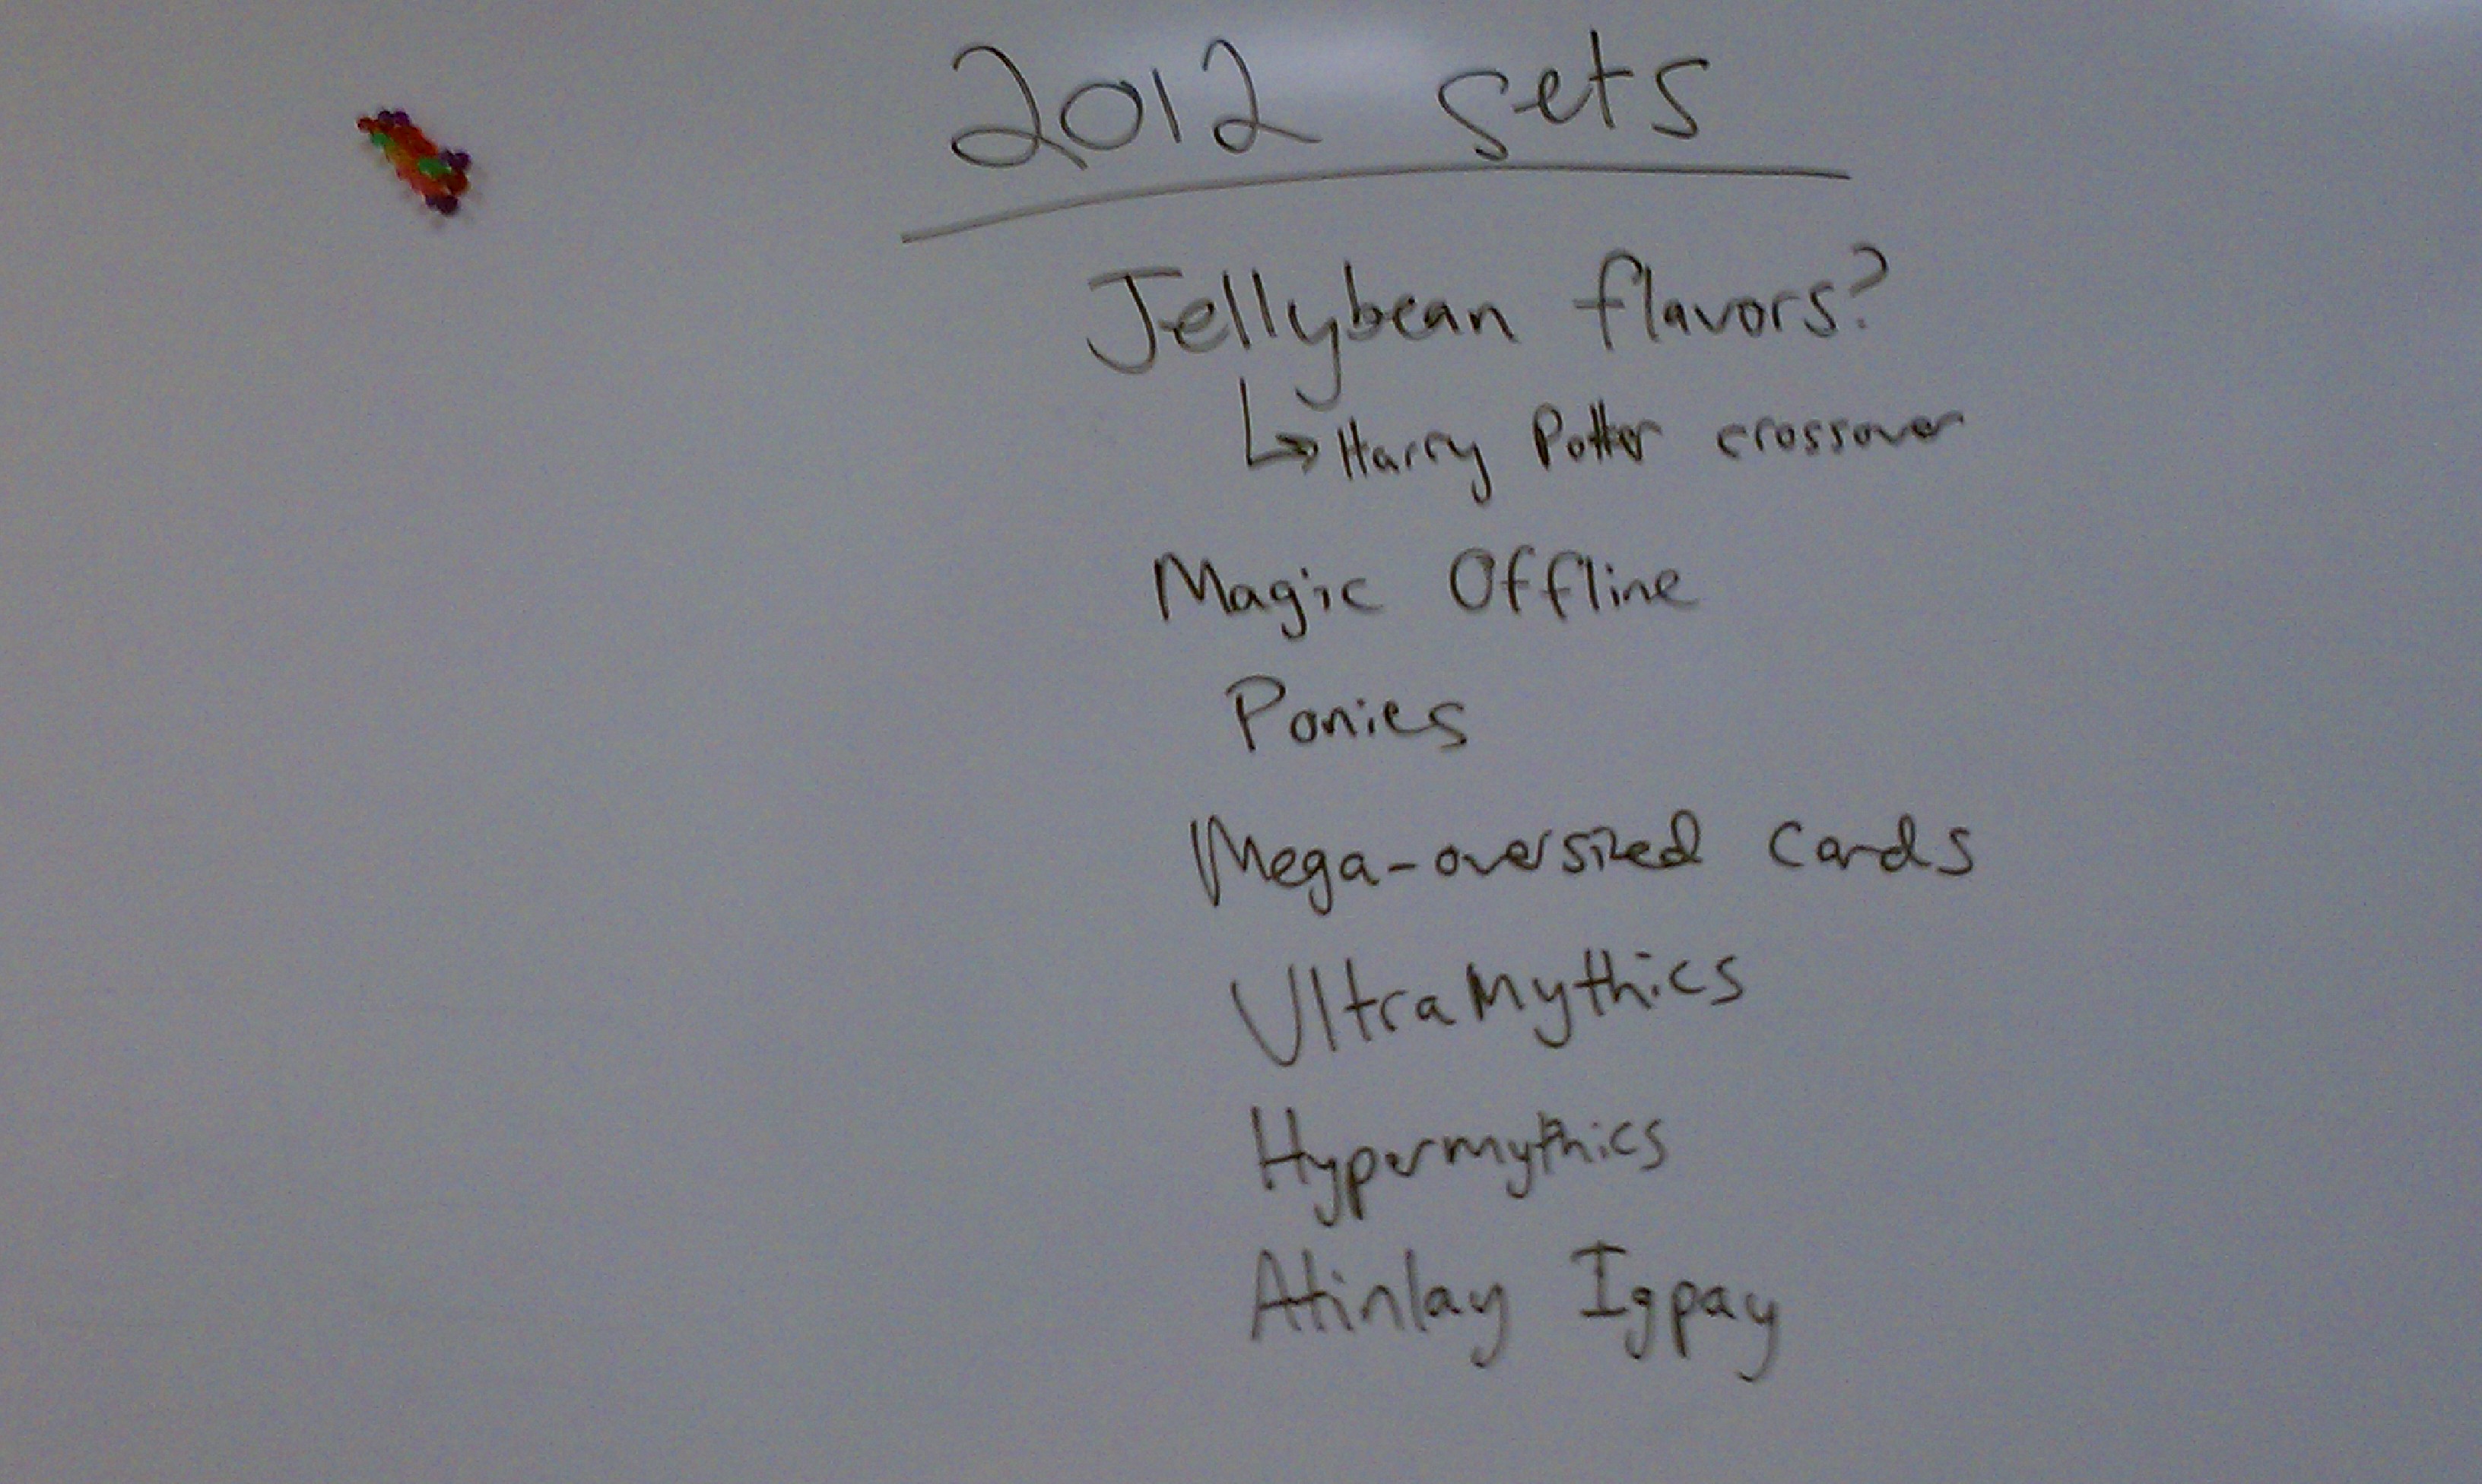 2012 sets
Jellybean flavors?
↳ Harry Potter crossover
Magic Offline
Ponies
Mega-oversized cards
UltraMythics
Hypermythics
Atinlay Igpay